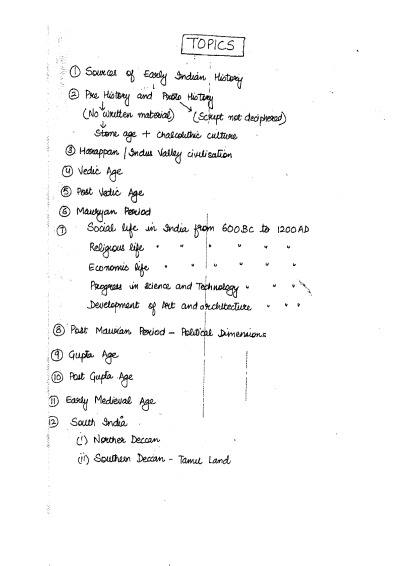 TOPICS
① Sources of Early Indian History
② Pre History and Proto History
(No written material) (Script not deciphered)
Stone age + chalcolithic culture
③ Harappan / Indus Valley civilisation
④ Vedic Age
⑤ Post Vedic Age
⑥ Mauryan Period
⑦ Social life in India from 600BC to 1200AD
Religious life " " " " "
Economic life " " " " " "
Progress in science and Technology " " "
Development of Art and architecture " " "
⑧ Post Mauryan Period - Political Dimensions
⑨ Gupta Age
⑩ Post Gupta Age
⑪ Early Medieval Age
⑫ South India
(i) Norther Deccan
(ii) Southern Deccan - Tamil Land